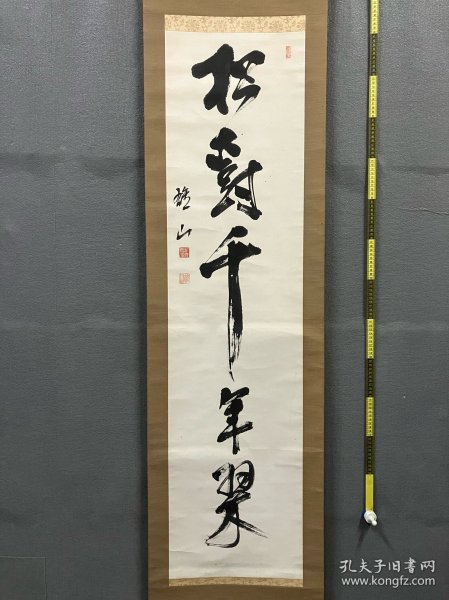 松寿千年翠
孔夫子旧书网
www.kongfz.com